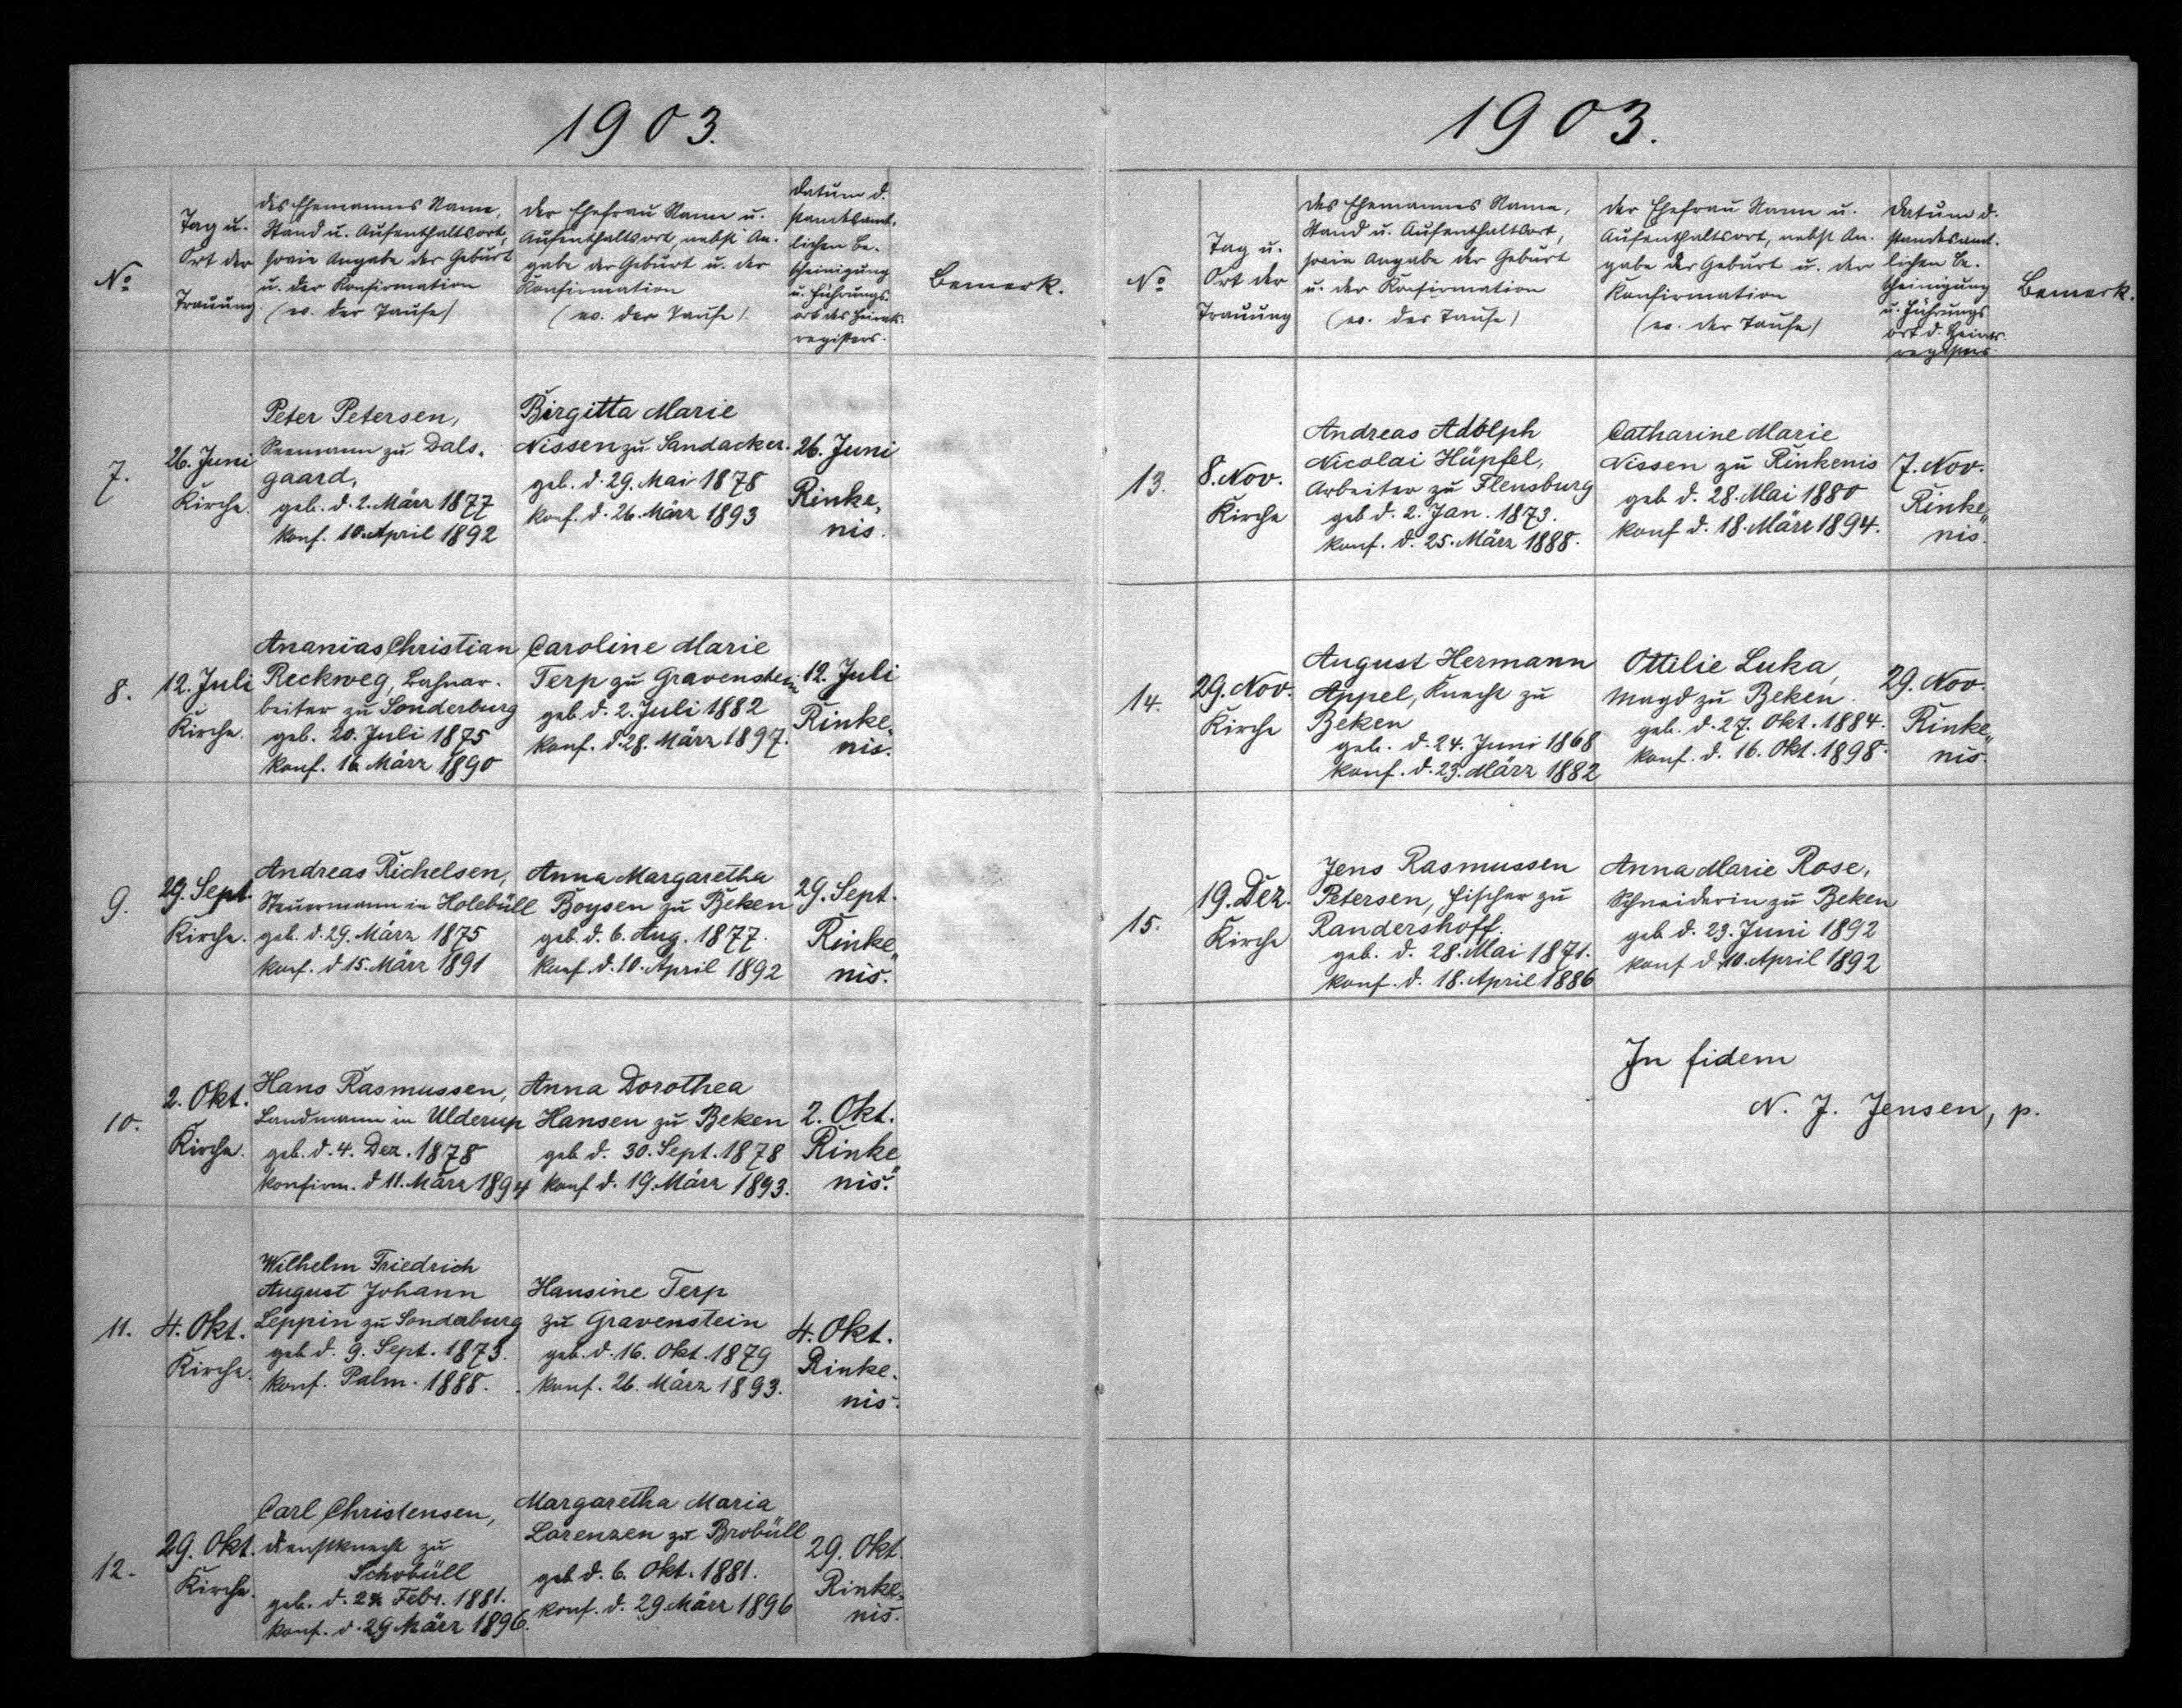 1903.
No
Tag u.
Ort der
Trauung
des Ehemannes Name,
Stand u. Aufenthaltsort,
sowie Angabe der Geburt
u. der Konfirmation
(ev. der Taufe)
der Ehefrau Name u.
Aufenthaltsort, nebst An-
gabe der Geburt u. der
Konfirmation
(ev. der Taufe)
Datum d.
standesamt-
lichen Be-
scheinigung
u. Führungs-
ort des Heirats-
registers.
Bemerk.
7.
26. Juni
Kirche.
Peter Petersen,
Seemann zu Dals-
gaard,
geb. d. 2. März 1877
konf. 10. April 1892
Birgitta Marie
Nissen zu Sandacker.
geb. d. 29. Mai 1878
konf. d. 26. März 1893
26. Juni
Rinke-
nis.
8.
12. Juli
Kirche.
Ananias Christian
Reckweg, Bahnar-
beiter zu Sonderburg
geb. 20. Juli 1875
konf. 16. März 1890
Caroline Marie
Terp zu Gravenstein
geb. d. 2. Juli 1882
konf. d. 28. März 1897.
12. Juli
Rinke-
nis.
9.
29. Sept.
Kirche.
Andreas Richelsen,
Steuermann in Holebüll
geb. d. 29. März 1875
konf. d 15. März 1891
Anna Margaretha
Boysen zu Beken
geb. d. 6. Aug. 1877.
konf. d. 10. April 1892
29. Sept.
Rinke-
nis.
10.
2. Okt.
Kirche.
Hans Rasmussen,
Landmann in Ulderup
geb. d. 4. Dez. 1878
konfirm. d 11. März 1894
Anna Dorothea
Hansen zu Beken
geb d. 30. Sept. 1878
konf d. 19. März 1893.
2. Okt.
Rinke-
nis.
11.
4. Okt.
Kirche.
Wilhelm Friedrich
August Johann
Leppin zu Sonderburg
geb d. 9. Sept. 1873.
konf. Palm. 1888.
Hansine Terp
zu Gravenstein
geb. d. 16. Okt. 1879
konf. 26. März 1893.
4. Okt.
Rinke-
nis.
12.
29. Okt.
Kirche.
Carl Christensen,
Dienstknecht zu
Schobüll
geb. d. Febr. 1881.
konf. d. 29 März 1896.
Margaretha Maria
Lorenzen zu Brobüll
geb d. 6. Okt. 1881.
konf. d. 29 März 1896
29. Okt.
Rinke-
nis.
1903.
No
Tag u.
Ort der
Trauung
des Ehemannes Name,
Stand u. Aufenthaltsort,
sowie Angabe der Geburt
u. der Konfirmation
(ev. der Taufe)
der Ehefrau Name u.
Aufenthaltsort, nebst An-
gabe der Geburt u. der
Konfirmation
(ev. der Taufe)
Datum d.
standesamt-
lichen Be-
scheinigung
u. Führungs-
ort d. Heirats-
registers.
Bemerk.
13.
8. Nov.
Kirche
Andreas Adolph
Nicolai Hüpfel,
Arbeiter zu Flensburg
geb d. 2. Jan. 1873.
konf. d. 25. März 1888.
Catharine Marie
Nissen zu Rinkenis
geb d. 28. Mai 1880
konf d. 18. März 1894.
7. Nov.
Rinke-
nis.
14.
29. Nov.
Kirche
August Hermann
Appel, Knecht zu
Beken
geb. d. 24. Juni 1868
konf. d. 23. März 1882
Ottilie Luka,
Magd zu Beken.
geb. d. 27. Okt. 1884.
konf. d. 16. Okt. 1898.
29. Nov.
Rinke-
nis.
15.
19. Dez.
Kirche
Jens Rasmussen
Petersen, Fischer zu
Randershoff.
geb. d. 28. Mai 1871.
konf. d. 18. April 1886
Anna Marie Rose,
Schneiderin zu Beken
geb d. 23. Juni 1892
konf d. 10. April 1892
In fidem
N. J. Jensen, p.